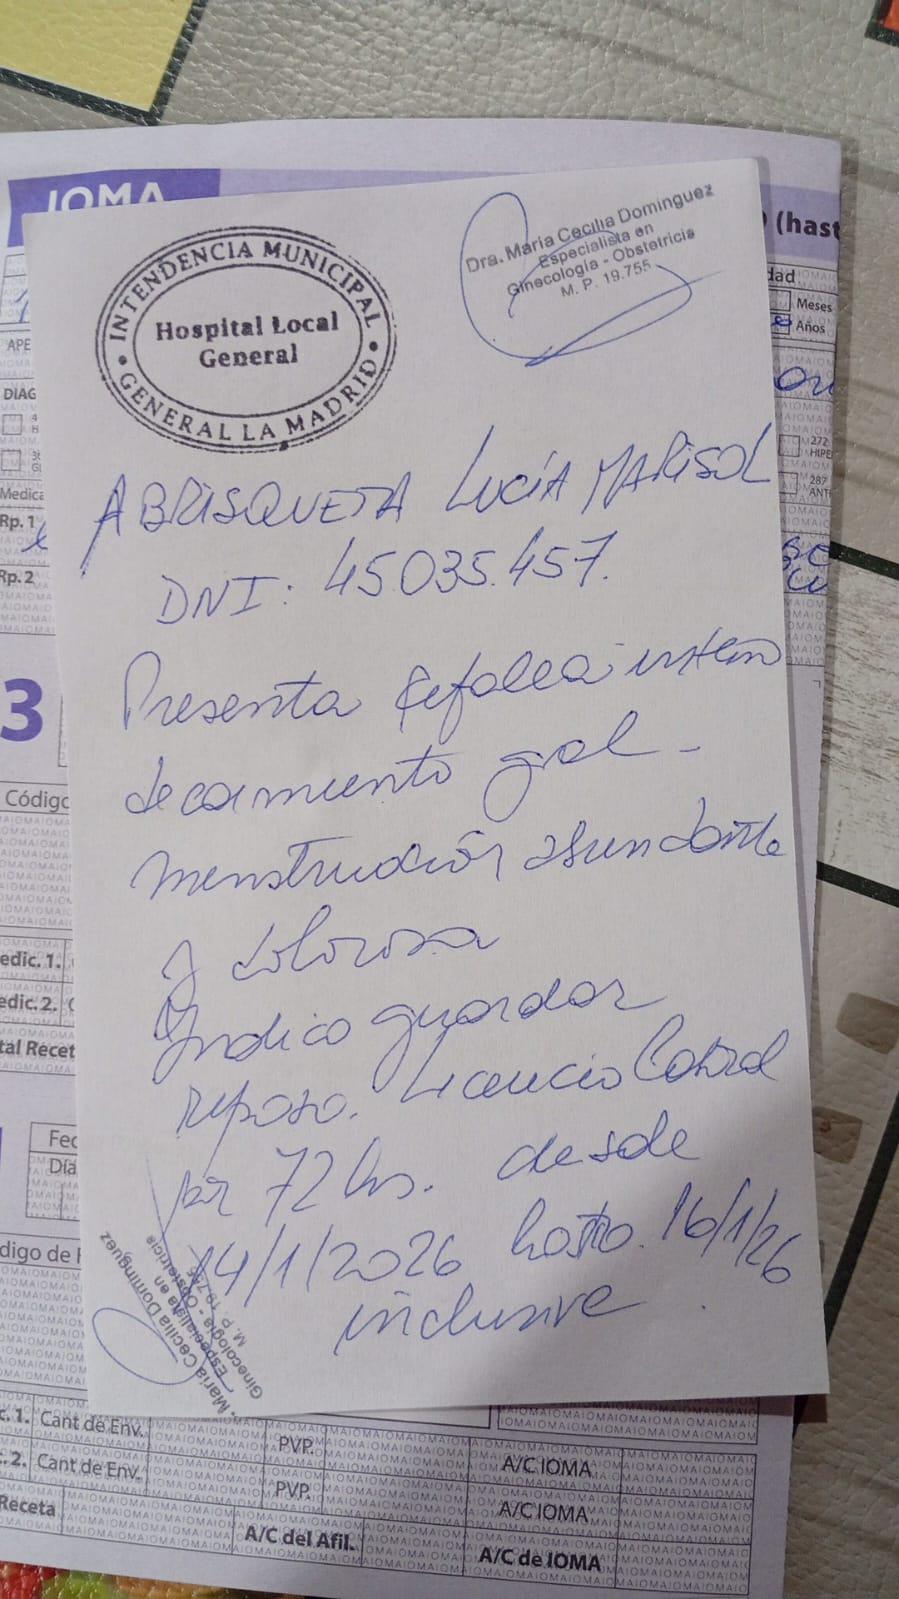 IOMA
(hast
dad
Meses
Años
INTENDENCIA MUNICIPAL
Hospital Local
General
GENERAL LA MADRID
Dra. Maria Cecilia Dominguez
Especialista en
Ginecología - Obstetricia
M. P. 19.755
APE
DIAG
272
HIPE
287
ANT
Medica
Rp. 1
Rp. 2
ABRISQUETA LUCÍA MARISOL
DNI: 45.035.457.
Presenta cefalea intensa
decaimiento gral -
menstruación abundante
y dolorosa
Indico guardar
reposo. Licencia Laboral
por 72 hs. desde
14/1/2026 hasta 16/1/26
inclusive.
Maria Cecilia Dominguez
Especialista en
Ginecología - Obstetricia
M. P. 19.755
3
Código
edic. 1.
edic. 2.
tal Recet
Fec
Día
digo de
c. 1. Cant de Env. PVP. A/C IOMA
c. 2. Cant de Env. PVP. A/C IOMA
Receta A/C del Afil. A/C de IOMA